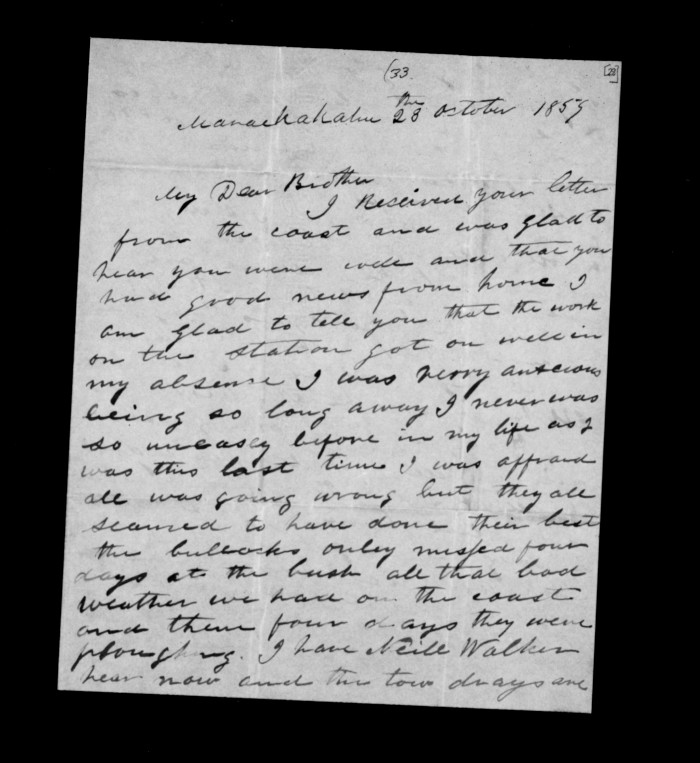 (33.
[23]
the
28 October 1859
My Dear Brother
I Received your letter
from the coast and was glad to
hear you were well and that you
had good news from home I
am glad to tell you that the work
on the station got on well in
my absense I was verry antcious
being so long away I never was
so uneasey before in my life as I
was this last time I was affraid
all was going wrong but they all
seamed to have done their best
the bullocks onley missed four
days at the bush all that bad
weather we had on the coast
and them four days they were
ploughing. I have Neill Walker
hear now and the tow drays are